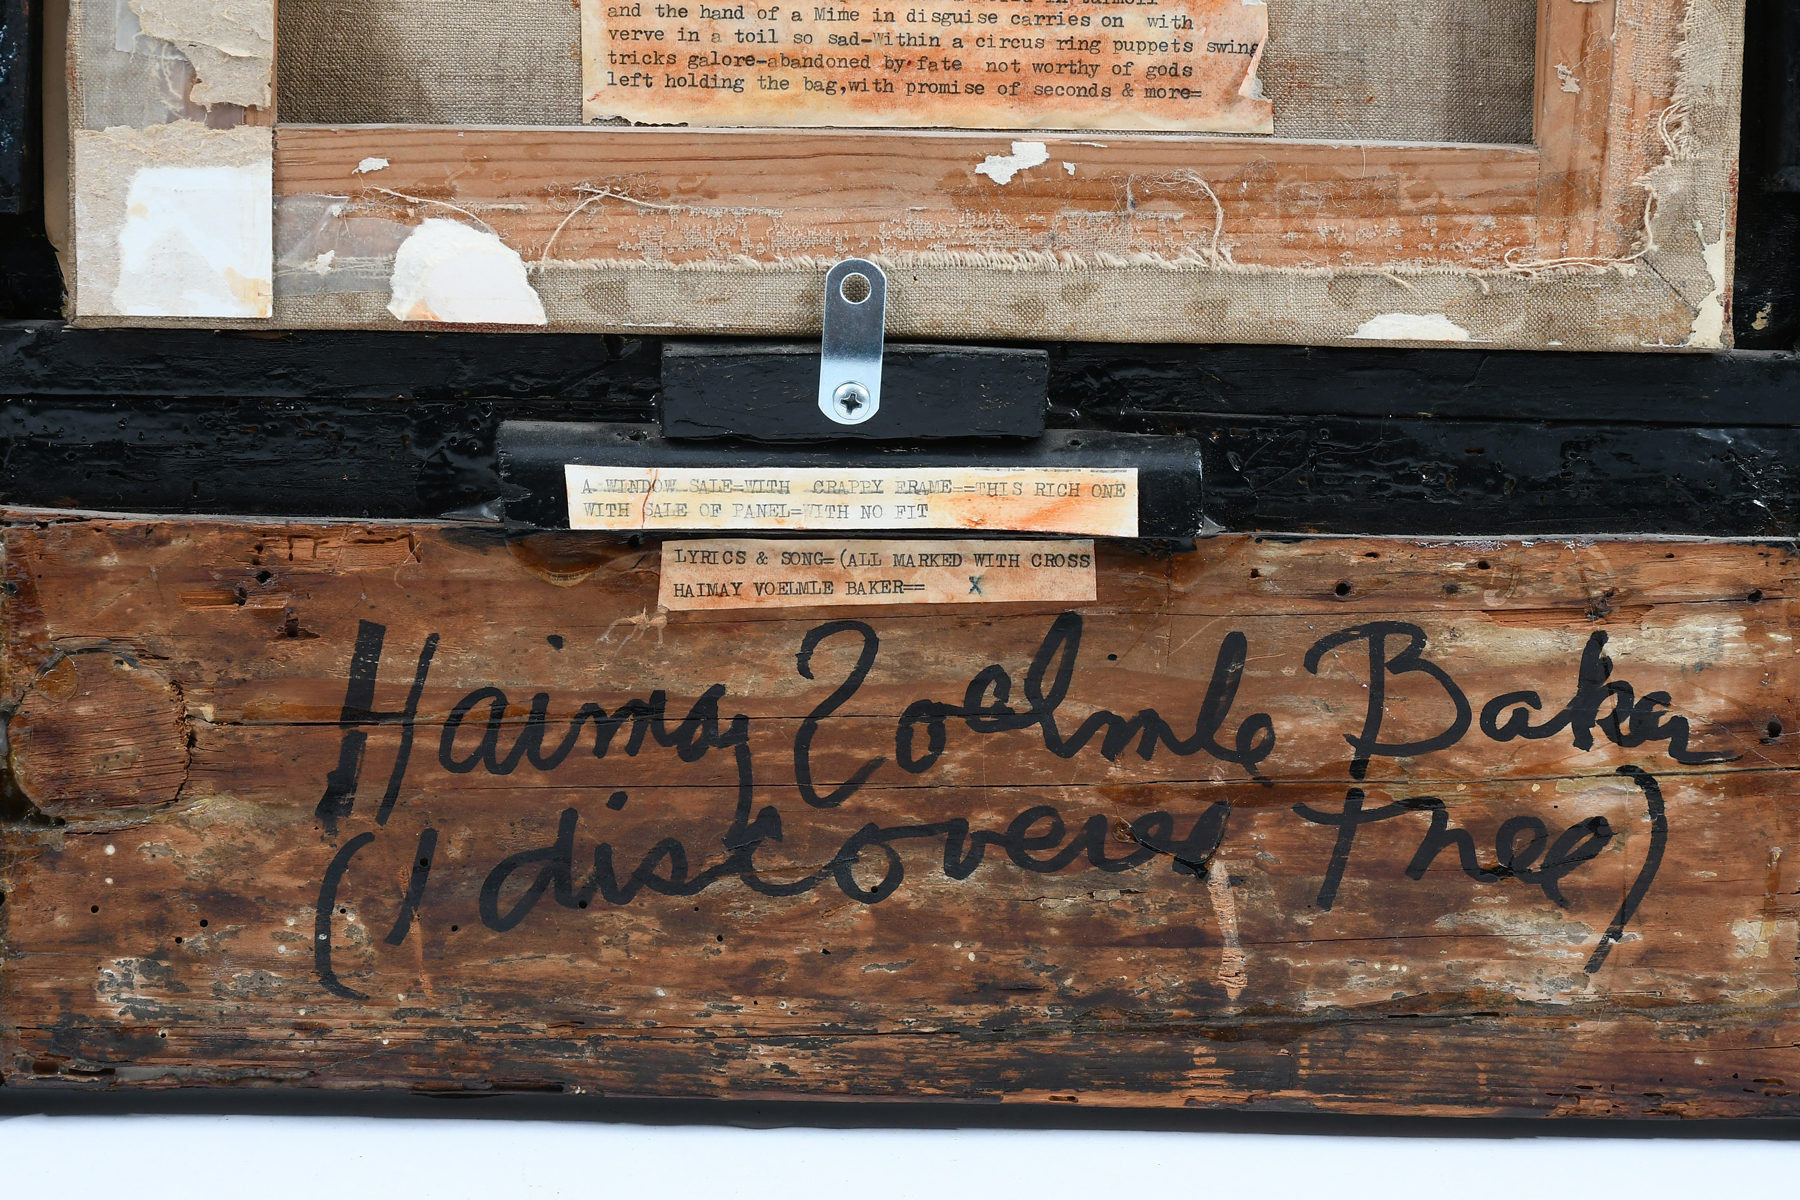 in turmoil
and the hand of a Mime in disguise carries on with
verve in a toil so sad-Within a circus ring puppets swing
tricks galore-abandoned by fate not worthy of gods
left holding the bag,with promise of seconds & more=
A WINDOW SALE=WITH CRAPPY FRAME==THIS RICH ONE
WITH SALE OF PANEL=WITH NO FIT
LYRICS & SONG=(ALL MARKED WITH CROSS
HAIMAY VOELMLE BAKER== X
Haimay Zoelmle Baker
(I discovered thee)